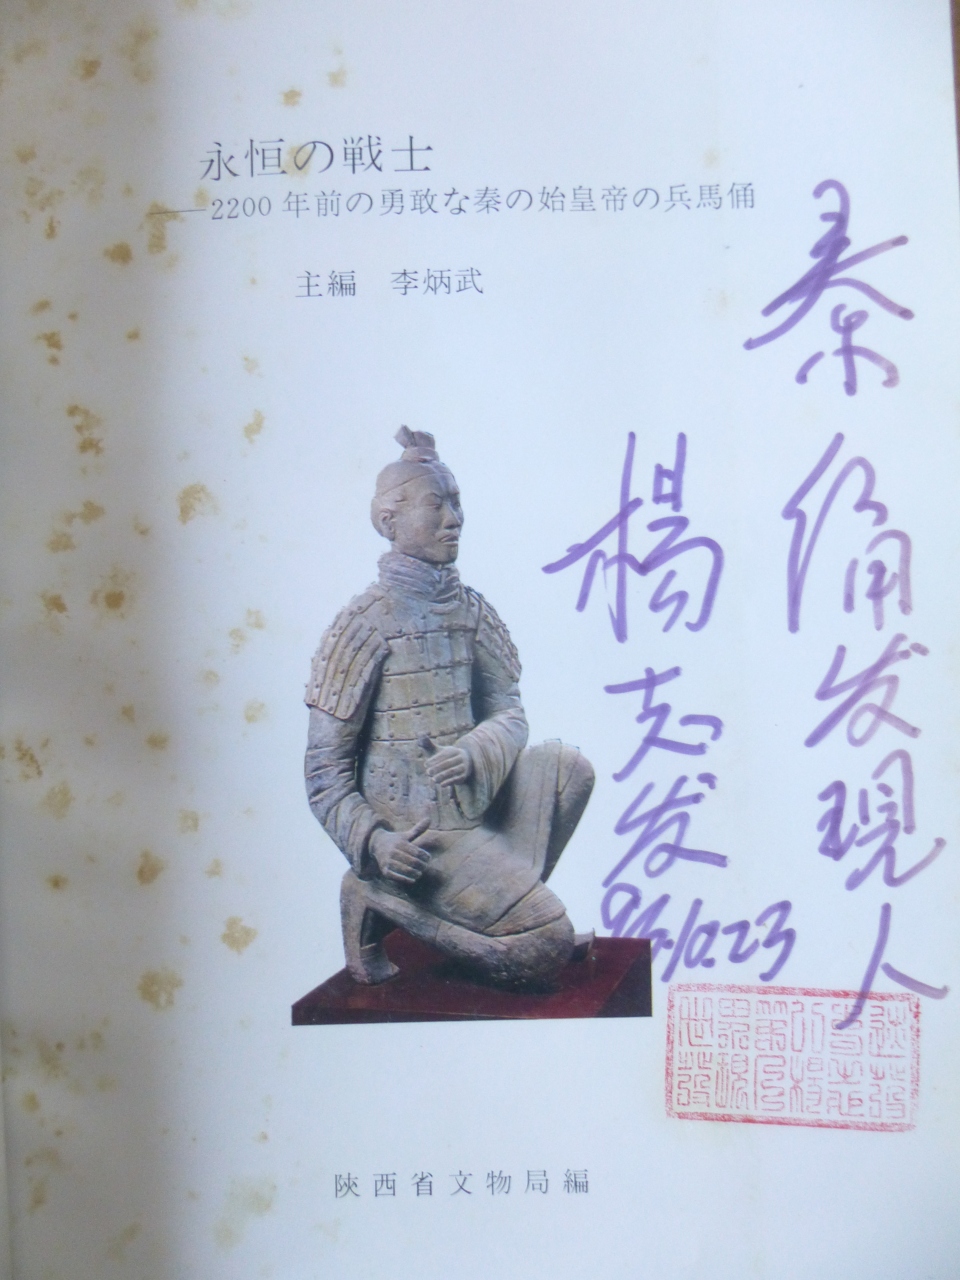 永恒の戦士
——2200年前の勇敢な秦の始皇帝の兵馬俑
主編　李炳武
秦俑发現人
楊志发
陝西省文物局編